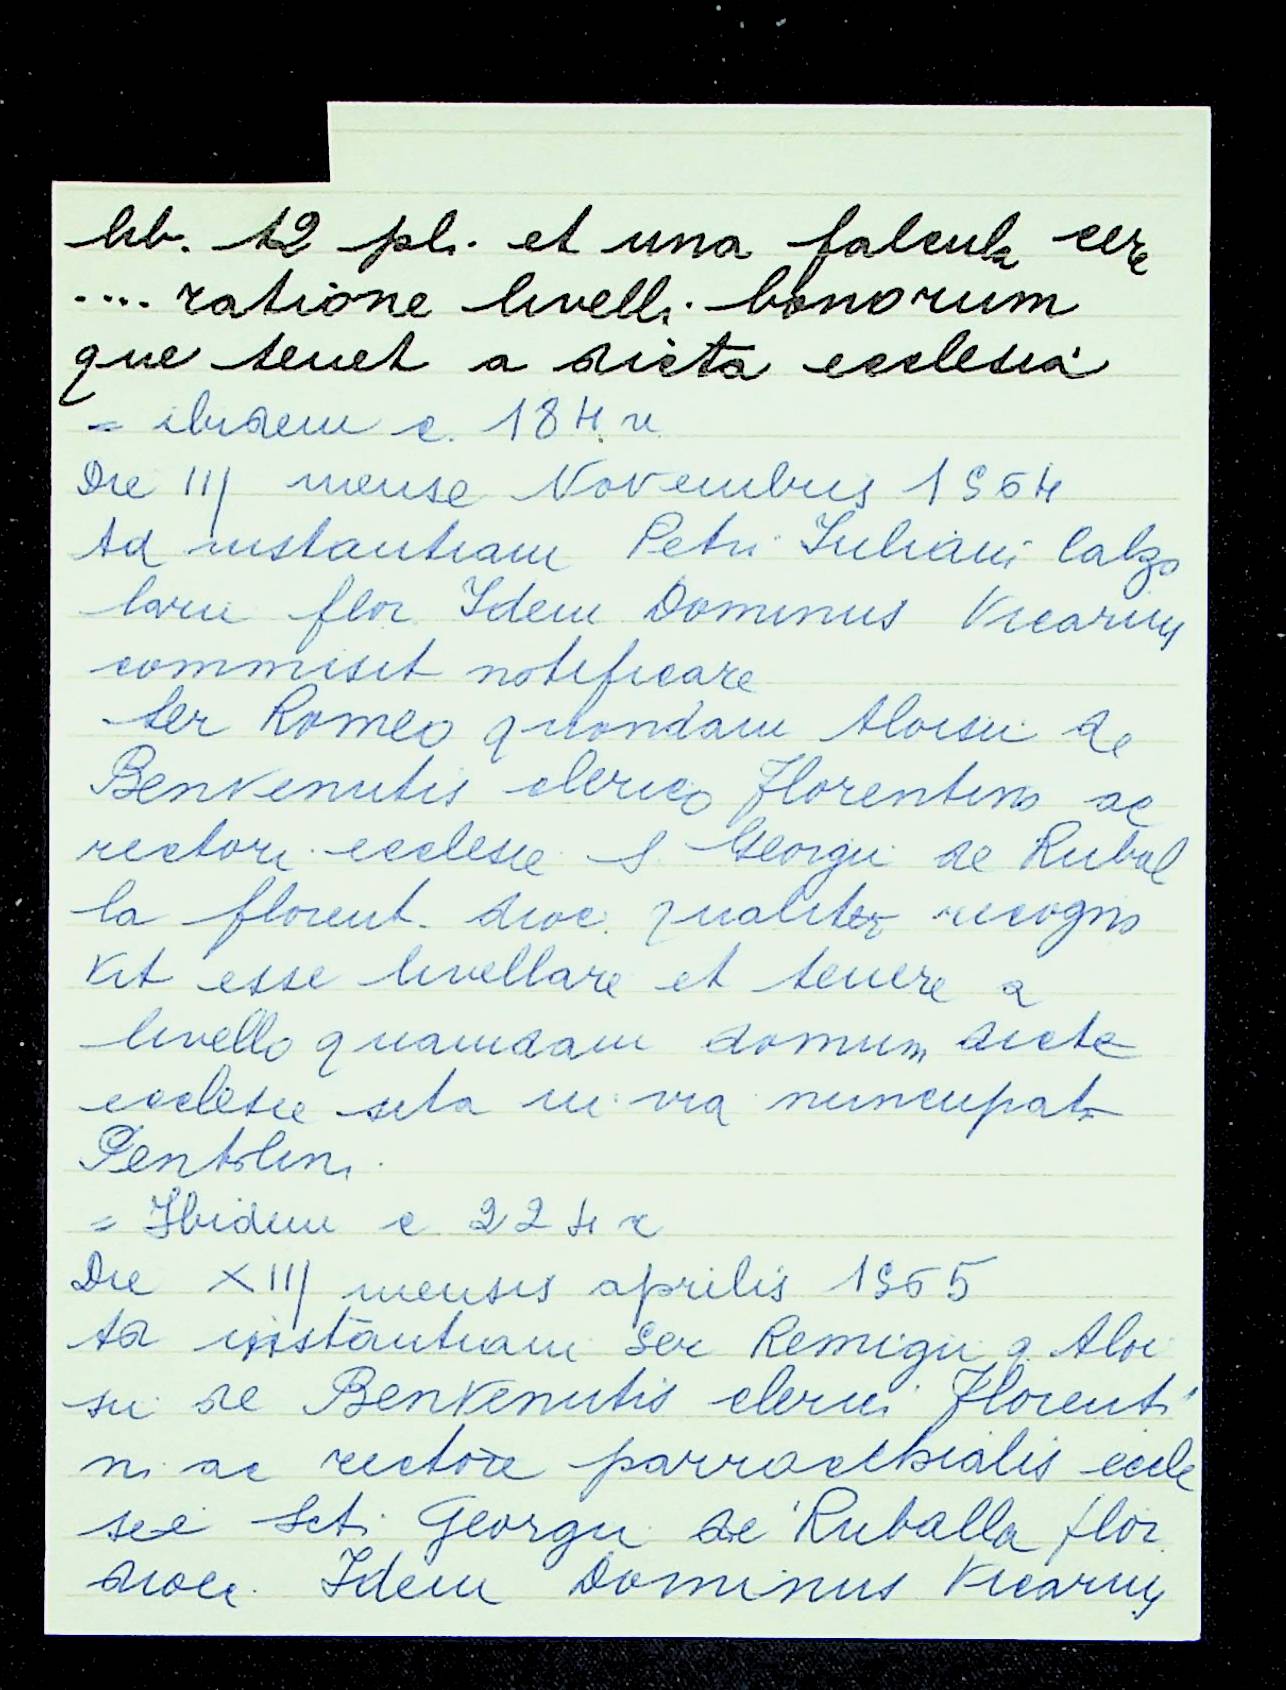 lib. 12 pli. et una falcula cere
.... ratione livelli bonorum
que tenet a dicta ecclesia
= ibidem c. 184 r
Die III mense Novembris 1564
Ad instantiam Petri Iuliani Calzo
larii flor Idem Dominus Vicarius
commisit notificare
Ser Romeo quondam Aloisii de
Benvenutis clerico florentino ac
rectori ecclesie S. Georgii de Rubal
la florent. dioc. qualiter recogno
vit esse livellare et tenere a
livello quamdam domum dicte
ecclesie sita in via nuncupata
Pentolini
= Ibidem c 224 r
Die XIII mensis aprilis 1565
Ad instantiam Ser Remigii q Aloi
sii de Benvenutis clerici Florenti
ni ac rectore parrochialis eccle
sie Scti Georgii de Ruballa flor
dioce. Idem Dominus Vicarius